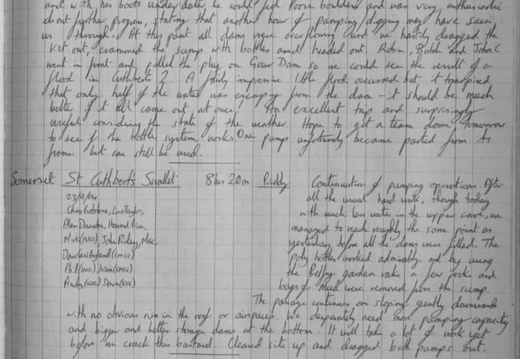 and with her boots underwater, he could feel loose boulders and was very enthusiastic
about further progress, stating that another hour of pumping/digging may have seen
us through. At this point all dams were overflowing and we hastily dragged the
kit out, crammed the sump with bottles and headed out. Robin, Butch and John C
went in front and pulled the plug on Gour Dam so we could see the result of a
flood in Cuthbert's 2. A fairly impressive little flood occurred but it transpired
that only half of the water was escaping from the dam - it should be much
better if it all came out at once. An excellent trip and surprisingly
useful considering the state of the weather. Hope to get a team down tomorrow
to see if the bottle system works. One pump unfortunately became parted from its
frame but can still be used.
Somerset St Cuthbert's Swallet 8 hr 20 m Priddy Continuation of pumping operations. After
all the usual hard work, though today
with much less water in the upper cave, we
managed to reach roughly the same point as
yesterday before all the dams were filled. The
poly bottles worked admirably and by using
the Belfry garden rake a few rocks and
bags of mud were removed from the sump.
The passage continues on sloping gently downwards
with no obvious rise in the roof or airspace. We desperately need more pumping capacity
and bigger and better storage dams at the bottom. It will take a lot of work yet
before we crack this bastard. Cleared site up and dragged both pumps out.